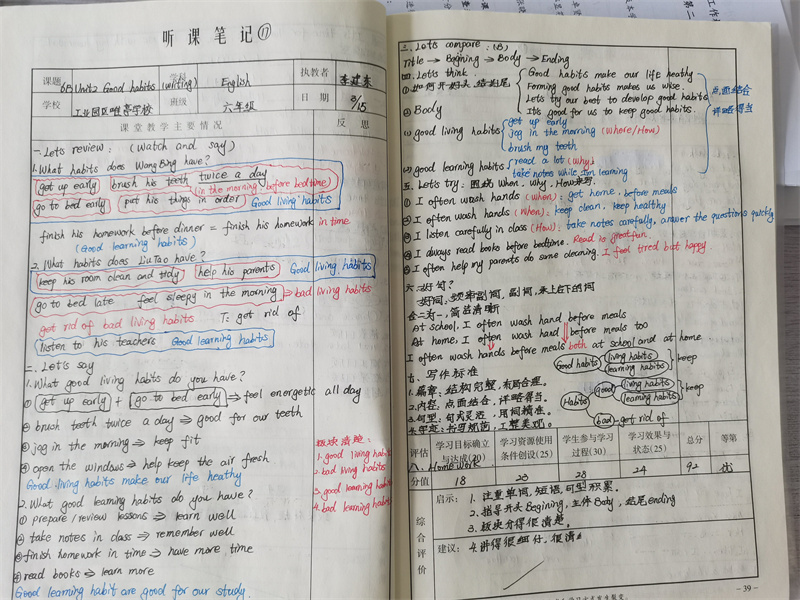 听课笔记⑰
课题 6B Unit2 Good habits (writing) 学科 English 执教者 李建东
学校 工业园区唯亭学校 班级 六年级 日期 3/15
课堂教学主要情况 反思
一. Let's review: (Watch and say)
1. What habits does Wang Bing have?
get up early brush his teeth twice a day
(in the morning, before bedtime)
go to bed early put his things in order Good living habits
finish his homework before dinner = finish his homework in time
(Good learning habits)
2. What habits does Liu Tao have?
keep his room clean and tidy help his parents Good living habits
go to bed late feel sleepy in the morning ⇒ bad living habits
get rid of bad living habits T: get rid of
listen to his teachers Good learning habits
二. Let's say
1. What good living habits do you have?
① get up early + go to bed early ⇒ feel energetic all day
② brush teeth twice a day ⇒ good for our teeth
③ jog in the morning ⇒ keep fit
④ open the windows ⇒ help keep the air fresh
Good living habits make our life heathy
板块清晰:
1. good living habits
2. bad living habits
3. good learning habits
4. bad learning habits
2. What good learning habits do you have?
① prepare / review lessons ⇒ learn well
② take notes in class ⇒ remember well
③ finish homework in time ⇒ have more time
④ read books ⇒ learn more
Good learning habit are good for our study.
三. Let's compare: (B)
Title → Begining → Body → Ending
四. Let's think:
① 如何开好头、结好尾
Good habits make our life heathy
Forming good habits makes us wise.
Let's try our best to develop good habits
It's good for us to keep good habits.
点面结合
详略得当
② Body
(1) good living habits
get up early
jog in the morning (Where/How)
brush my teeth
(2) good learning habits
read a lot (why)
take notes while I'm learning
五. Let's try: 围绕 When. Why. How来写.
① I often wash hands (when): get home. before meals
② I often wash hands (Why): keep clean. keep heathy
③ I listen carefully in class (How): take notes carefully, answer the questions quickly
④ I always read books before bedtime. Read is great fun.
⑤ I often help my parents do some cleaning. I feel tired but happy.
六. 好句?
好词、频率副词、副词、承上启下的词
合二为一, 简洁清晰
At school, I often wash hand before meals
At home, I often wash hand before meals too
I often wash hands before meals both at school and at home
七. 写作标准
1. 篇章: 结构完整. 布局合理.
2. 内容: 点面结合, 详略得当.
3. 句型: 句式灵活, 用词精准.
4. 书写规范, 工整美观.
Good habits living habits learning habits keep
Habits good living habits learning habits keep
bad - get rid of
八. Homework
评估 学习目标确立与达成(20) 学习资源使用条件创设(25) 学生参与学习过程(30) 学习效果与状态(25) 总分 等第
分值 18 23 28 24 92 优
综合评价
启示: 1. 注重单词, 短语, 句型积累.
2. 指导开头 Begining, 主体 Body, 结尾 ending
3. 板块分得很清楚.
建议: 4. 讲得很细仔, 很清
-39-